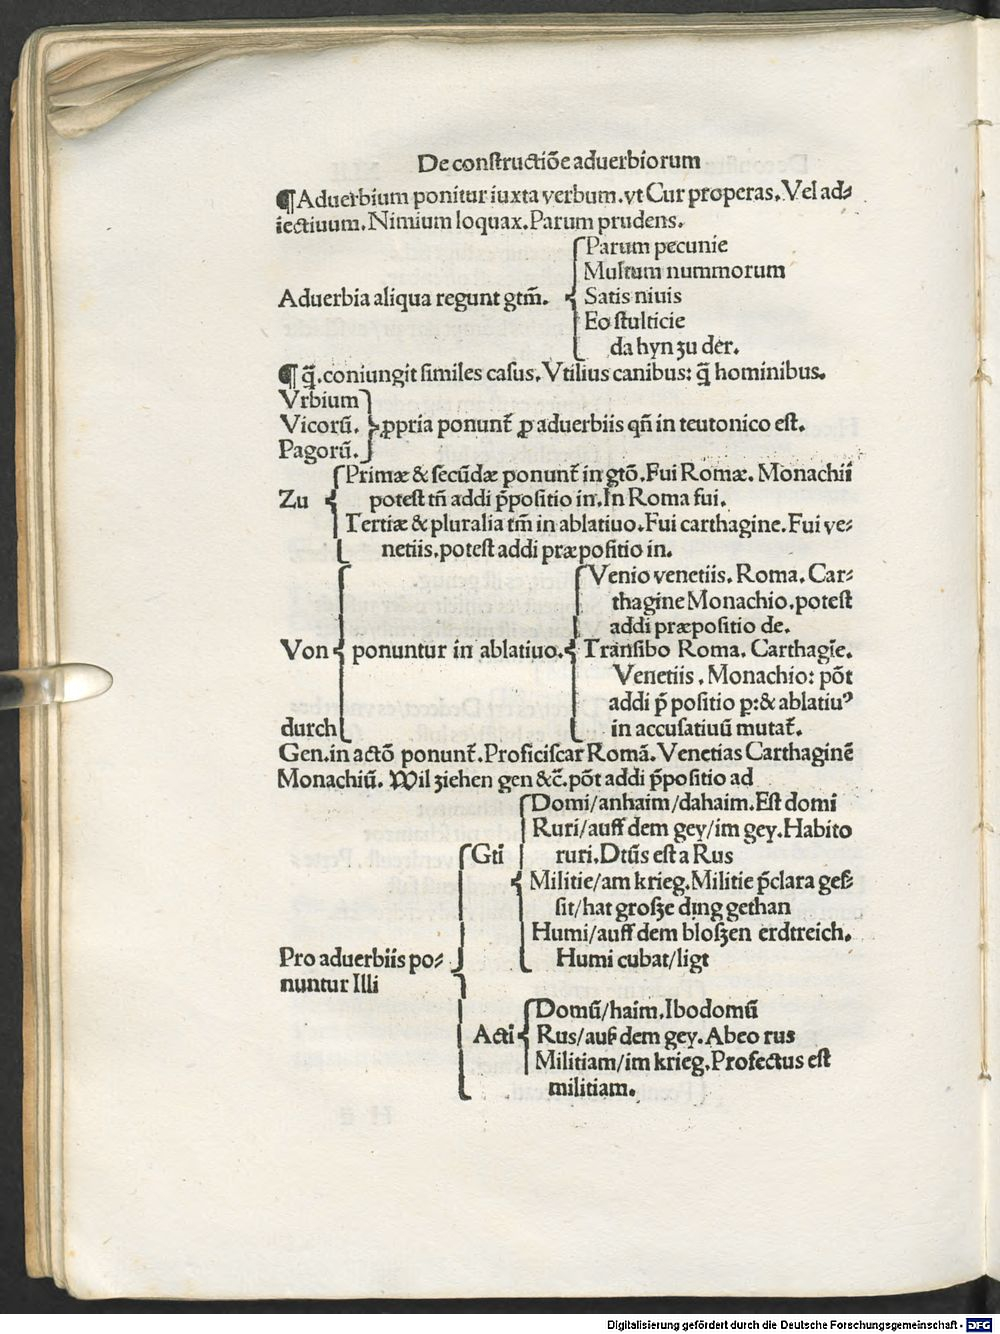 De constructiõe aduerbiorum
¶ Aduerbium ponitur iuxta verbum. vt Cur properas. Vel ad⸗
iectiuum. Nimium loquax. Parum prudens.
Parum pecunie
Multum nummorum
Aduerbia aliqua regunt gtm̃. Satis niuis
Eo stulticie
da hyn zu der.
¶ q̃. coniungit similes casus. Vtilius canibus: q̃ hominibus.
Vrbium
Vicorũ. ꝓpria ponunt̃ ꝑ aduerbiis qñ in teutonico est.
Pagorũ.
Primæ & secũdæ ponunt̃ in gtõ. Fui Romæ. Monachii
Zu potest tñ addi p̃positio in. In Roma fui.
Tertiæ & pluralia tm̃ in ablatiuo. Fui carthagine. Fui ve⸗
netiis. potest addi præpositio in.
Venio venetiis. Roma. Car⸗
thagine Monachio. potest
addi præpositio de.
Von ponuntur in ablatiuo. Transibo Roma. Carthagĩe.
Venetiis. Monachio: põt
addi p̃positio p: & ablatiuꝰ
durch in accusatiuũ mutat̃.
Gen. in actõ ponunt̃. Proficiscar Romã. Venetias Carthaginẽ
Monachiũ. Wil ziehen gen &c̃. põt addi p̃positio ad
Domi/anhaim/dahaim. Est domi
Ruri/auff dem gey/im gey. Habito
Gti ruri. Dtũs est a Rus
Militie/am krieg. Militie p̃clara ges⸗
sit/hat große ding gethan
Humi/auff dem bloßen erdtreich.
Pro aduerbiis po⸗ Humi cubat/ligt
nuntur Illi
Domũ/haim. Ibo domũ
Acti Rus/auß dem gey. Abeo rus
Militiam/im krieg. Profectus est
militiam.
Digitalisierung gefördert durch die Deutsche Forschungsgemeinschaft - DFG